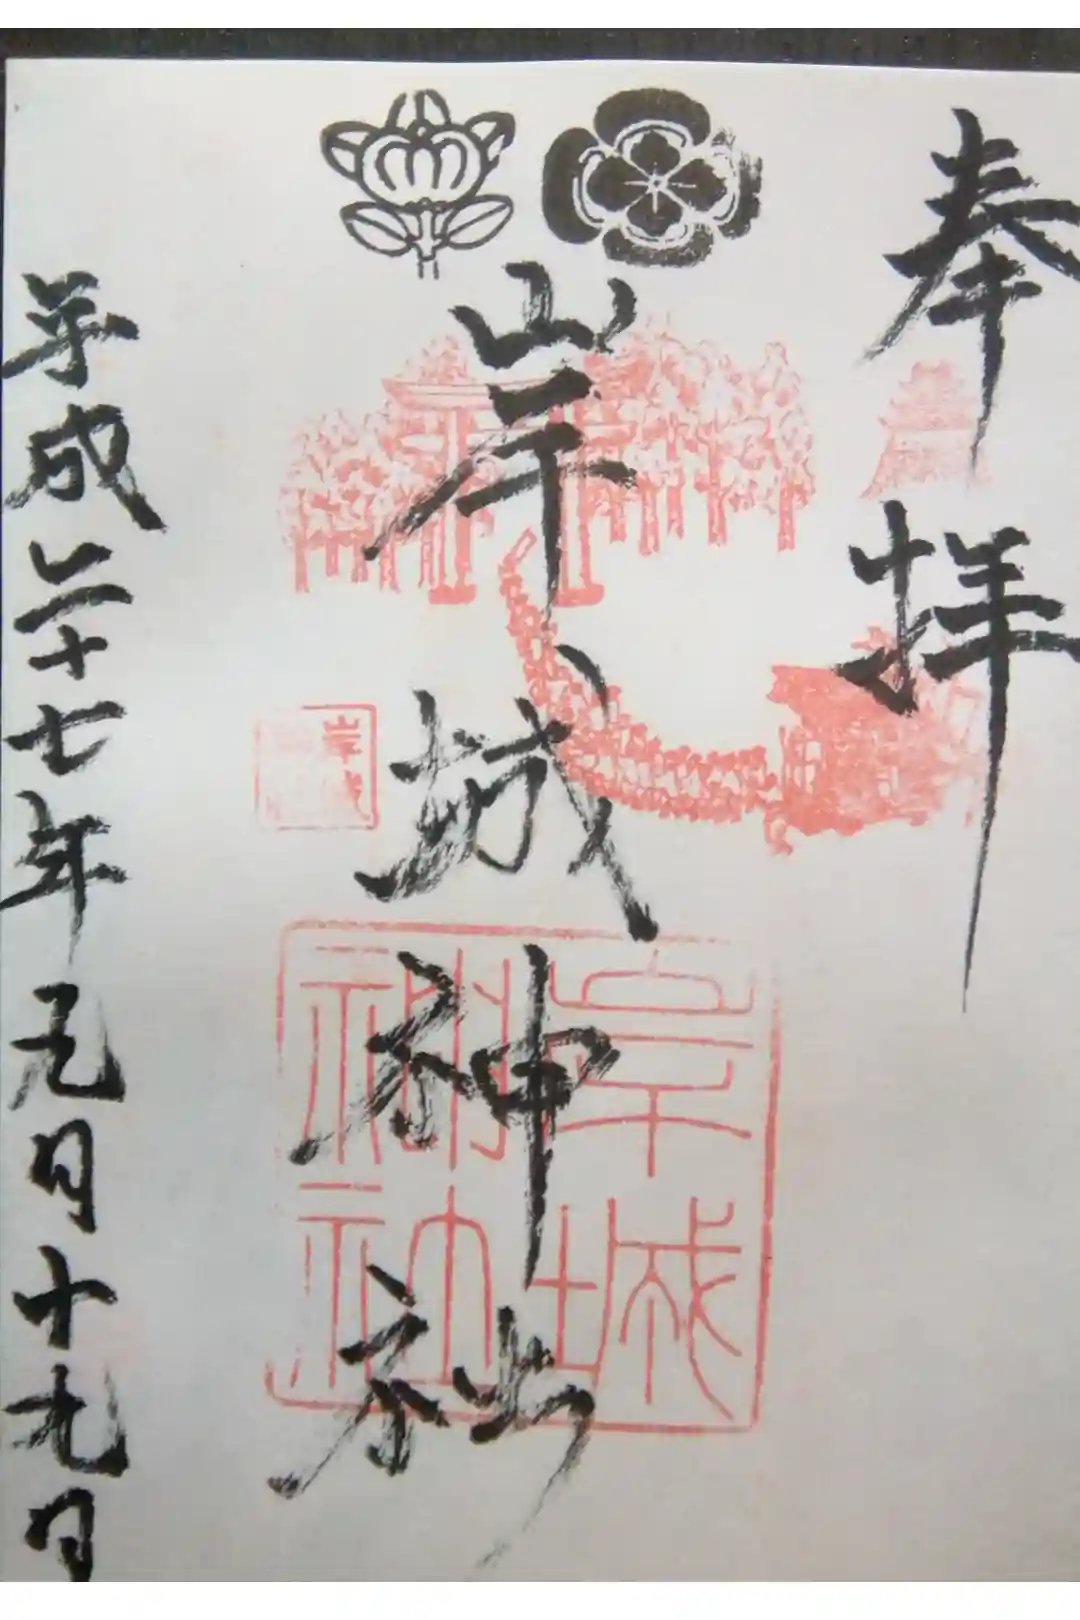 奉拝
岸城神社
平成二十七年元月十九日
岸城
岸城
神社